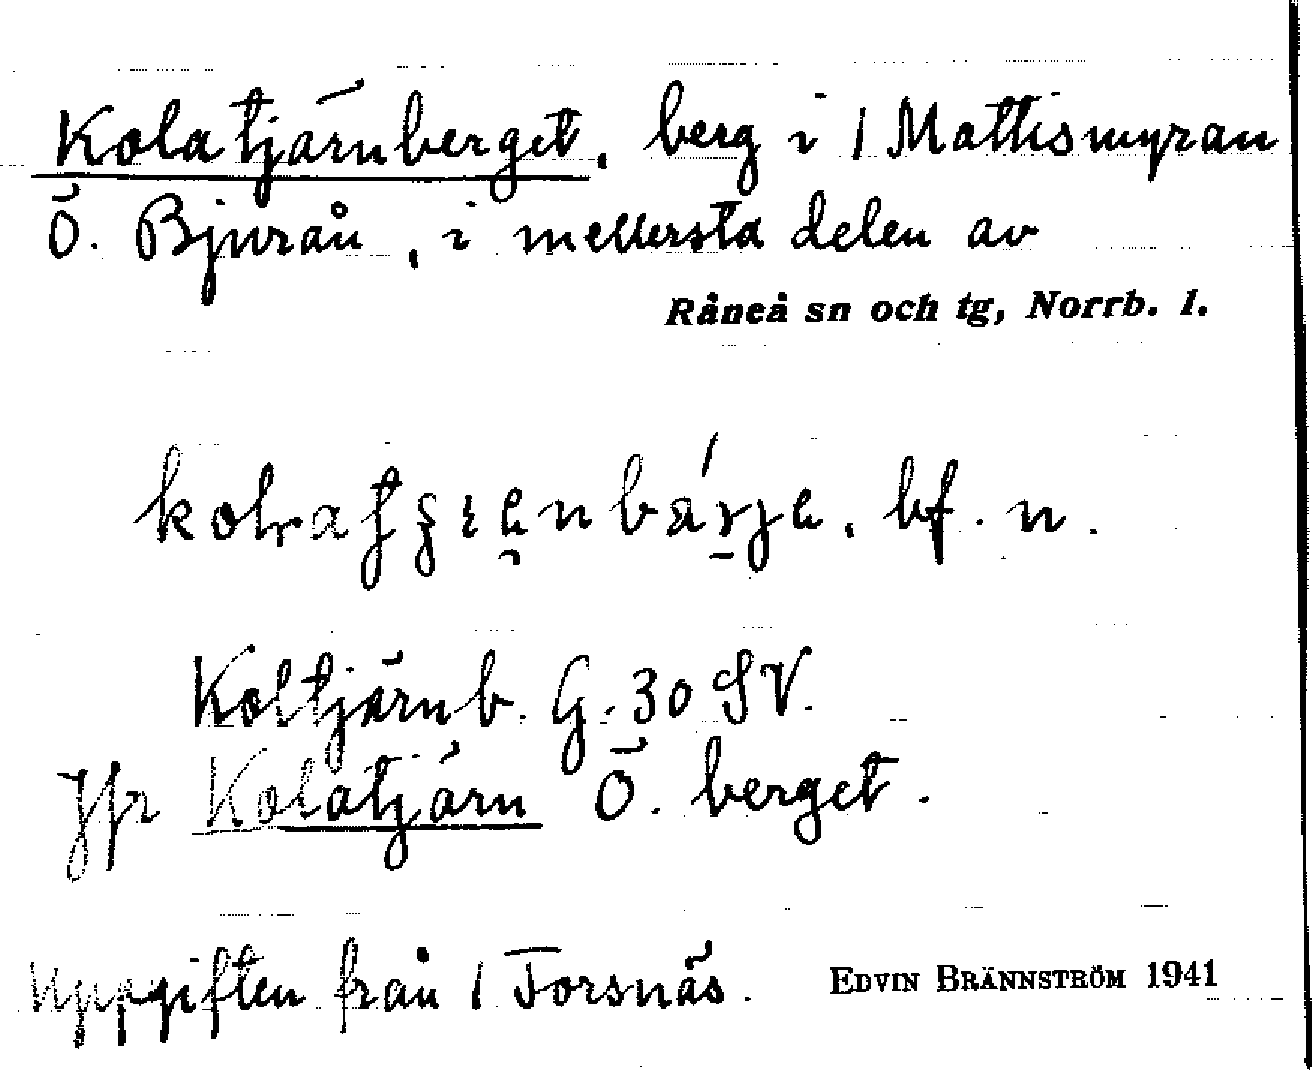 Kolatjärnberget, berg i / Mattismyran
Ö. Bjurån, i mellersta delen av
Råneå sn och tg, Norrb. l.
bf. n.
Koltjärnb. G. 30 SV.
Jfr Kolatjärn Ö. berget.
Uppgiften från / Forsnäs. EDVIN BRÄNNSTRÖM 1941